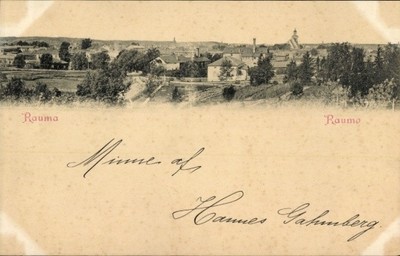 Rauma Raumo
Minne af
Hannes Gahmberg.